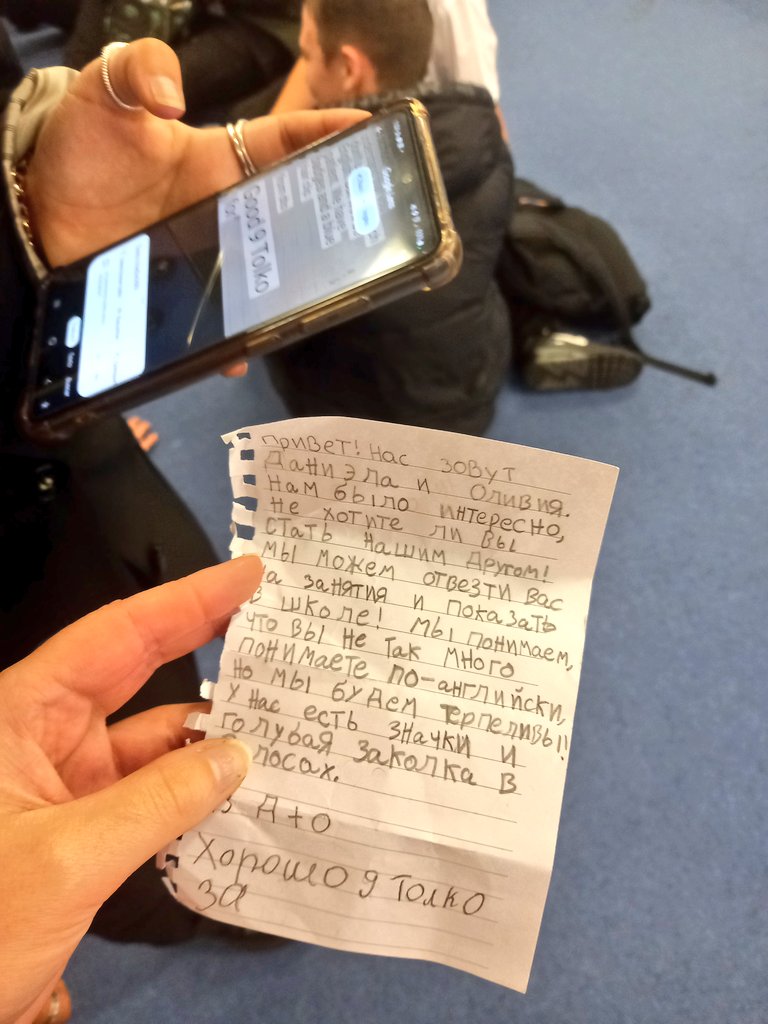 Good 9 Tolko
for
Привет! Нас зовут
Даниэла и Оливия.
Нам было интересно,
не хотите ли вы
стать нашим другом!
мы можем отвезти вас
на занятия и показать
в школе! мы понимаем,
что вы не так много
понимаете по-английски,
но мы будем терпеливы!
У нас есть значки и
голубая заколка в
волосах.
Д+О
Хорошо 9 Толко
за